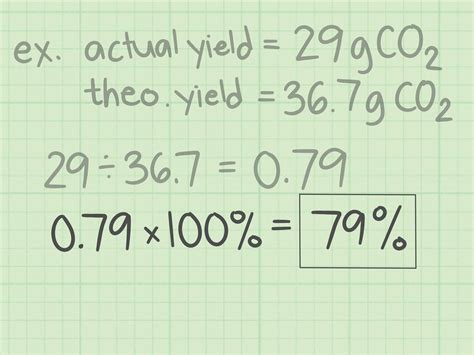 ex. actual yield = 29g CO₂
theo. yield = 36.7g CO₂
29 ÷ 36.7 = 0.79
0.79 x 100% = 79%